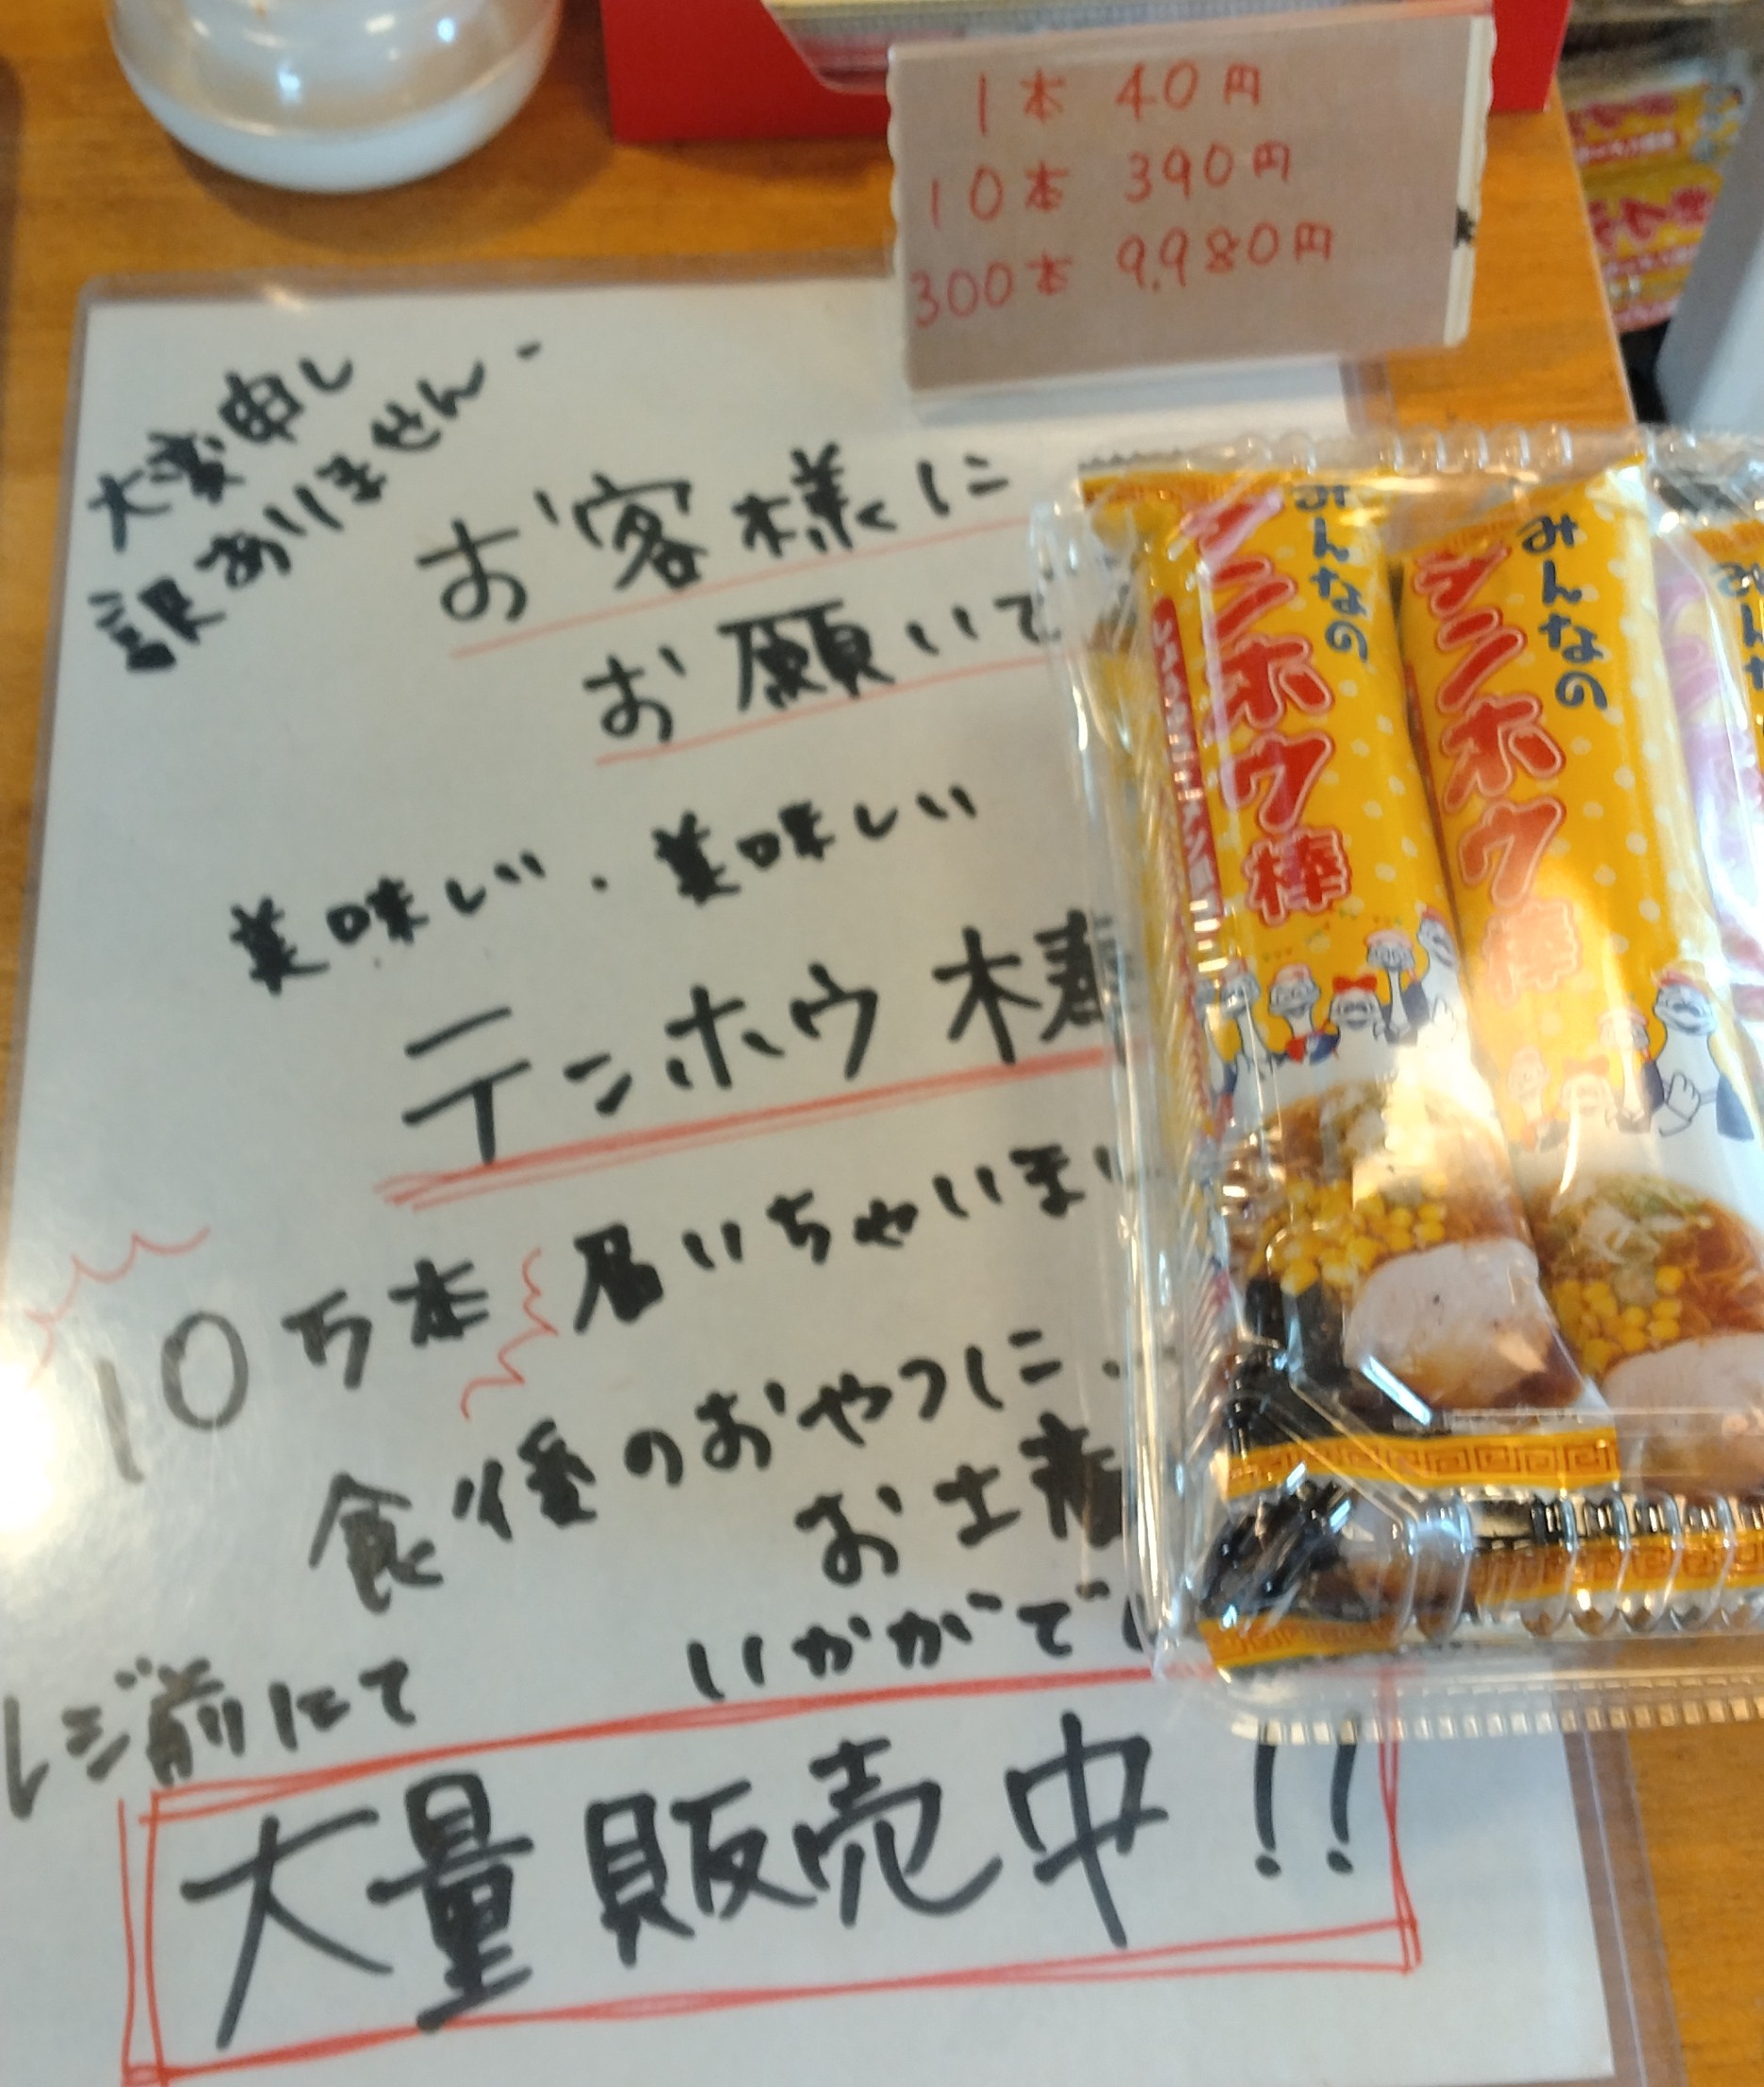 1本 40円
10本 390円
300本 9,980円
大変申し
訳ありません-
お客様に
お願いで
美味しい・美味しい
テンホウ棒
10万本 届いちゃいまし
食後のおやつに、
お土産
いかがでし
レジ前にて
大量販売中!!
みんなの
テンホウ棒
みんなの
テンホウ棒